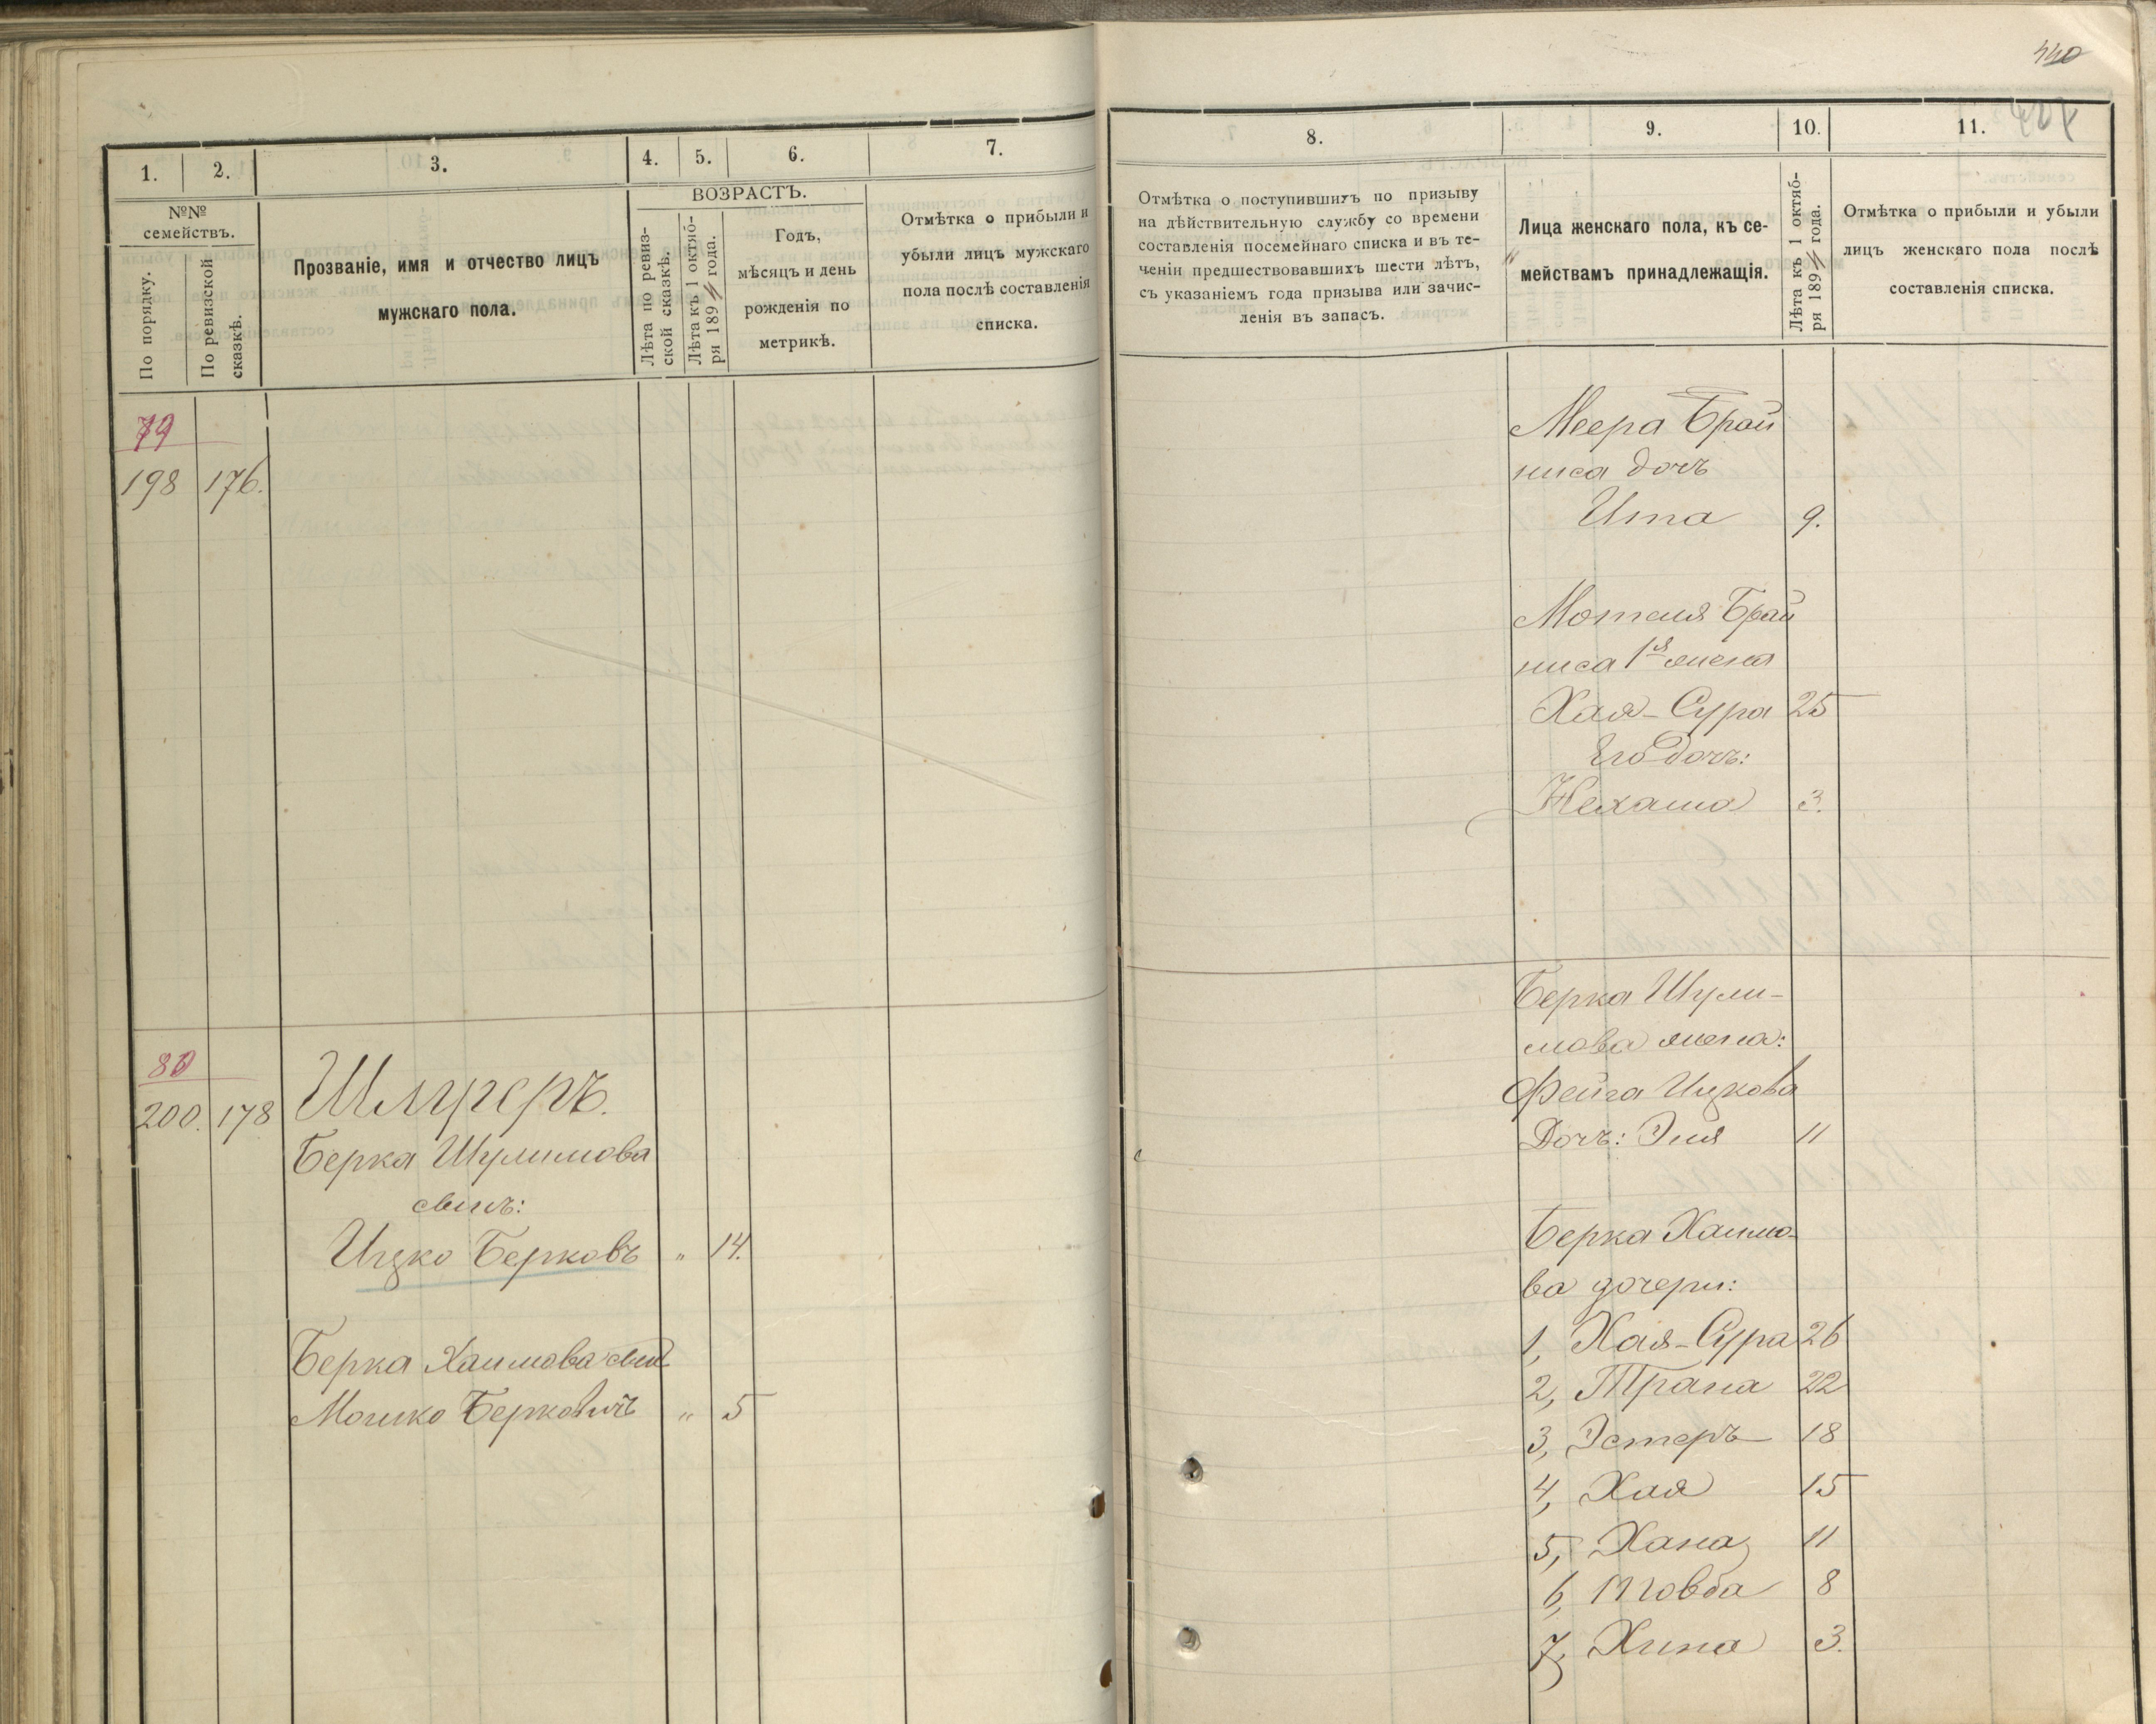 440
1.
2.
3.
4.
5.
6.
7.
№№ семействъ.
По порядку.
По ревизской сказкѣ.
Прозваніе, имя и отчество лицъ
мужскаго пола.
ВОЗРАСТЪ.
Лѣта по ревиз-
ской сказкѣ.
Лѣта къ 1 октяб-
ря 189 года.
Годъ,
мѣсяцъ и день
рожденія по
метрикѣ.
Отмѣтка о прибыли и
убыли лицъ мужскаго
пола послѣ составленія
списка.
8.
9.
10.
11.
Отмѣтка о поступившихъ по призыву
на дѣйствительную службу со времени
составленія посемейнаго списка и въ те-
ченіи предшествовавшихъ шести лѣтъ,
съ указаніемъ года призыва или зачис-
ленія въ запасъ.
Лица женскаго пола, къ се-
мействамъ принадлежащія.
Лѣта къ 1 октяб-
ря 189 года.
Отмѣтка о прибыли и убыли
лицъ женскаго пола послѣ
составленія списка.
79
198 176.
Меера Брай
ниса дочь
Ита 9.
Мотеля Брай
ниса 1я жена
Хая-Сура 25
Его дочь:
Нехама 3.
80
200. 178
Шлугеръ.
Берка Шулимова
сынъ:
Ицко Берковъ " 14.
Берка Хаимова сын
Мошко Берковичъ " 5
Берка Шули-
мова жена:
Фейга Ицкова
Дочь: Эля 11
Берка Хаимо-
ва дочери:
1, Хая-Сура 26
2, Трана 22
3, Эстеръ 18
4, Хая 15
5, Хана 11
6, Товба 8
7, Хина 3.